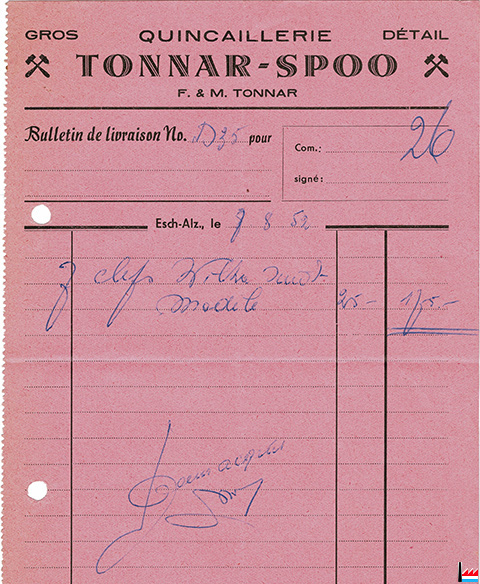 GROS QUINCAILLERIE DÉTAIL
TONNAR-SPOO
F. & M. TONNAR
Bulletin de livraison No. D75 pour
Com.: 26
signé:
Esch-Alz., le 7 8 52
7 clefs
Modèle